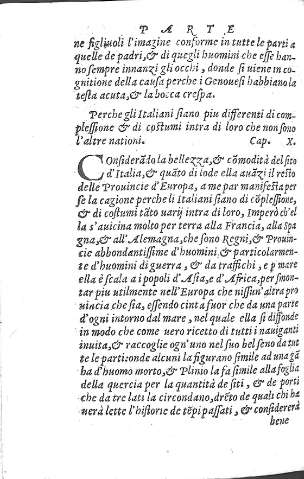 PARTE
ne figliuoli l'imagine conforme in tutte le parti a
quelle de padri, & di quegli huomini che esse han-
no sempre innanzi gli occhi, donde si uiene in co-
gnitione della causa perche i Genouesi habbiano la
testa acuta, & la bocca crespa.
Perche gli Italiani siano piu differenti di com-
plessione & di costumi intra di loro che non sono
l'altre nationi. Cap. X.
Considerãdo la bellezza, & cõmodità del sito
d'Italia, & quãto di iode ella auãzi il resto
delle Prouincie d'Europa, a me par manifesta per
se la cagione perche li Italiani siano di cõplessione,
& di costumi tãto uarij intra di loro, Imperò ch'el
la s'auicina molto per terra alla Francia, alla spa
gna, & all'Alemagna, che sono Regni, & Prouin-
cie abbondantissime d'huomini, & particolarmen-
te d'huomini di guerra, & da traffichi, e p mare
ella è scala ai popoli d'Asia, e d'Africa, per smon-
tar piu utilmente nell'Europa che nissun'altra pro
uincia che sia, essendo cinta fuor che da una parte
d'ogni intorno dal mare, nel quale ella si diffonde
in modo che come uero ricetto di tutti i nauiganti
inuita, & raccoglie ogn'uno nel suo bel seno da tut
te le parti onde alcuni la figurano simile ad una gã
ba d'huomo morto, & Plinio la fa simile alla foglia
della quercia per la quantità de siti, & de porti
che da tre lati la circondano, drẽto de quali chi ha
uerà lette l'historie de tẽpi passati, & considererà
bene